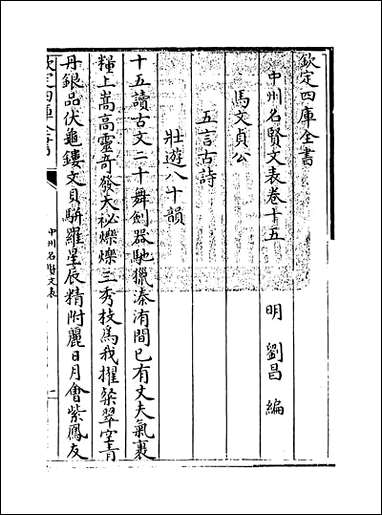 欽定四庫全書
中州名賢文表卷十五
明　劉昌　編
馬文貞公
五言古詩
壯遊八十韻
十五讀古文二十舞劍器馳獵溱洧間已有丈夫氣裹
糧上嵩高靈奇發天祕爍爍三秀枝為我擢粲翠空青
丹銀品伏龜鏤文貝駢羅星辰精附麗日月會紫鳳友
欽定四庫全書
中州名賢文表
一